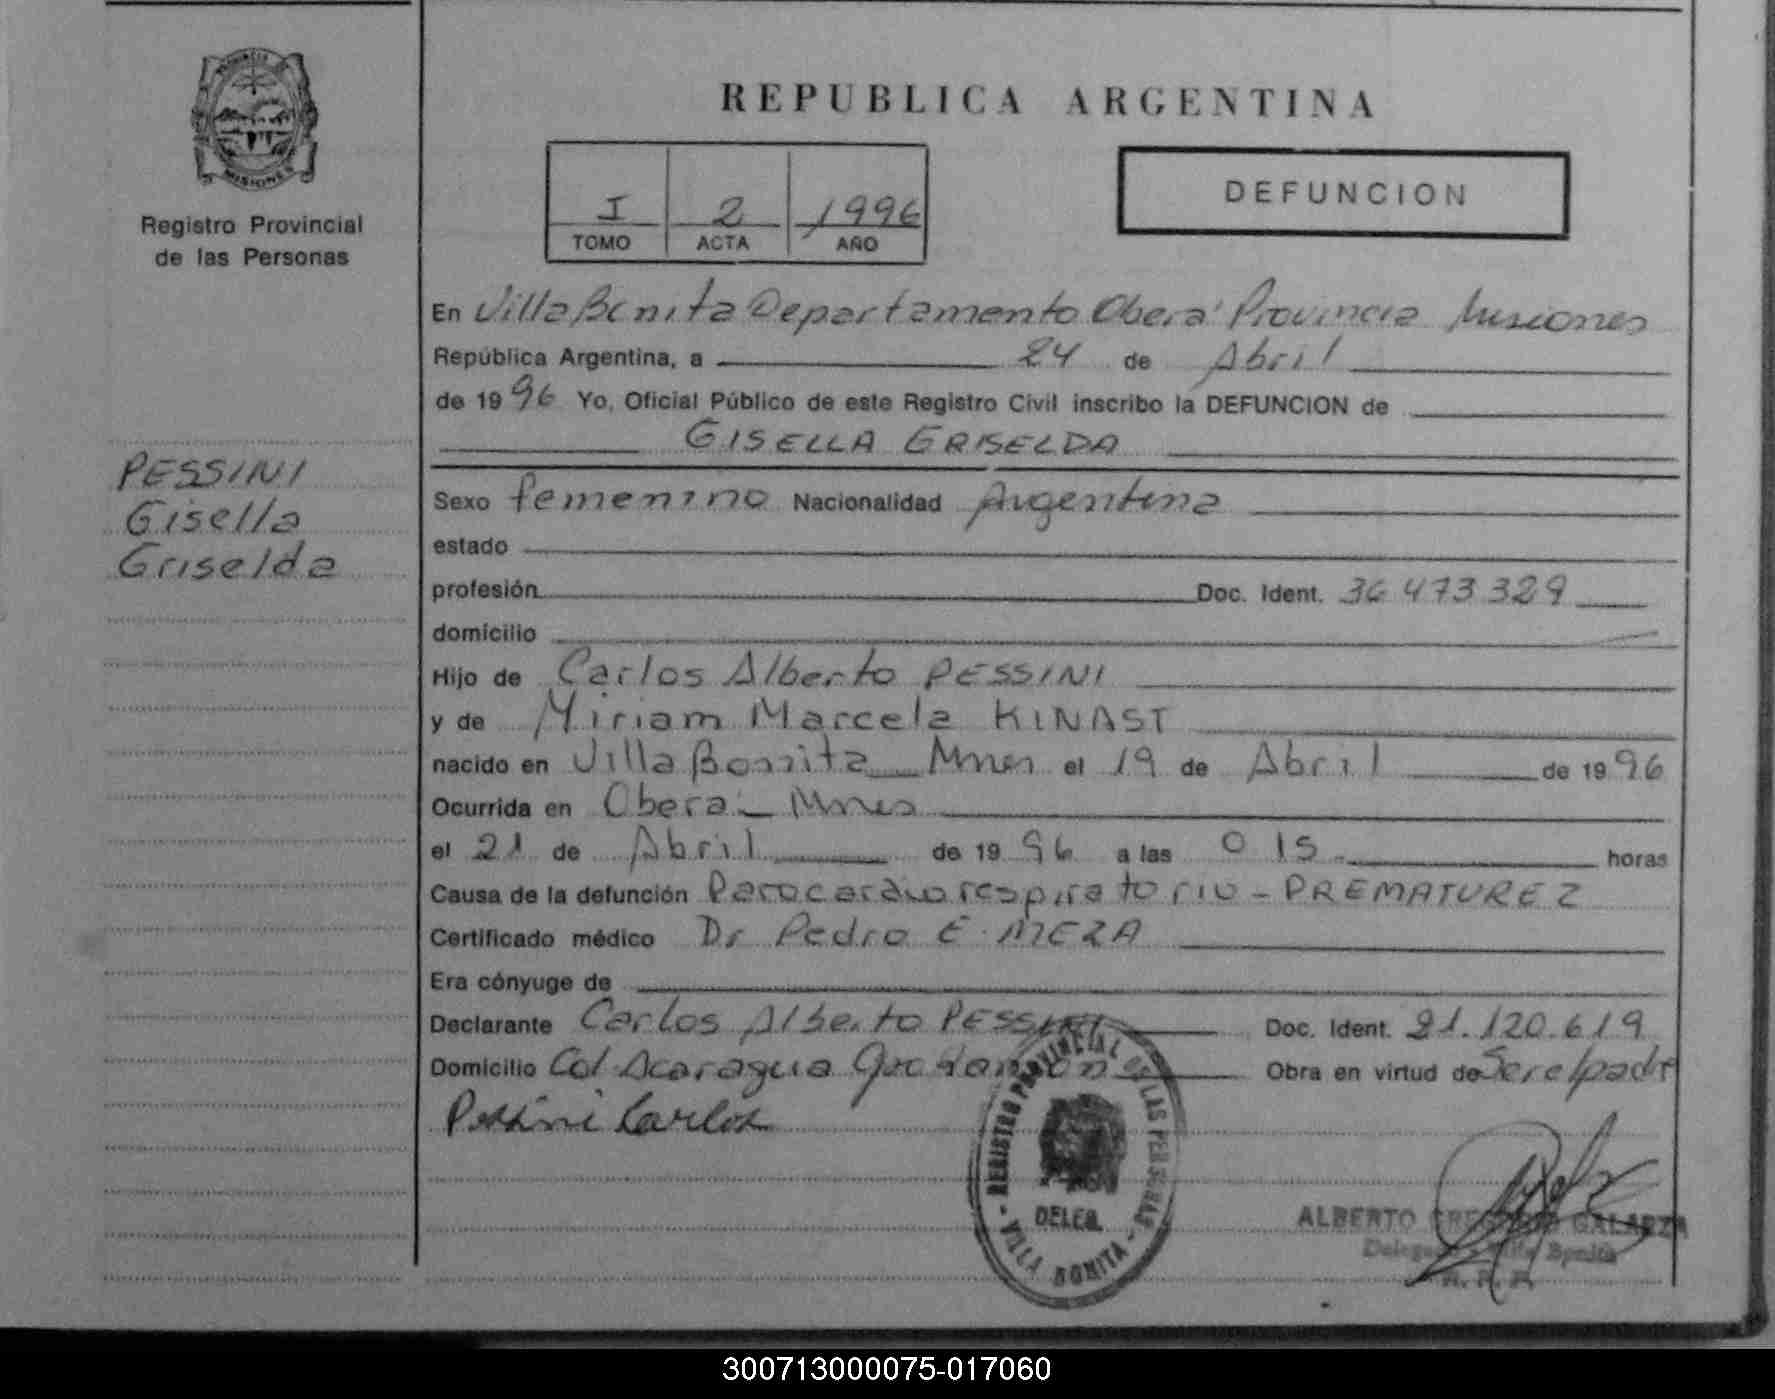 PROVINCIA
MISIONES
Registro Provincial
de las Personas
PESSINI
Gisella
Griselda
REPUBLICA ARGENTINA
I 2 1996
TOMO ACTA AÑO
DEFUNCION
En Villa Bonita Departamento Oberá Provincia Misiones
República Argentina, a 24 de Abril
de 1996 Yo, Oficial Público de este Registro Civil inscribo la DEFUNCION de
GISELLA GRISELDA
Sexo femenino Nacionalidad Argentina
estado
profesión Doc. Ident. 36 473 329
domicilio
Hijo de Carlos Alberto PESSINI
y de Miriam Marcela KINAST
nacido en Villa Bonita Mnes el 19 de Abril de 1996
Ocurrida en Obera - Mnes
el 21 de Abril de 1996 a las 0 15 horas
Causa de la defunción Parocardiorespiratorio - PREMATUREZ
Certificado médico Dr Pedro E. MEZA
Era cónyuge de
Declarante Carlos Alberto PESSINI Doc. Ident. 21.120.619
Domicilio Col Acaragua Obra en virtud de Ser el padre
Pessini Carlos
REGISTRO PROVINCIAL DE LAS PERSONAS
DELEG.
- VILLA BONITA -
ALBERTO GREGORIO GALARZA
Delegado Villa Bonita
R. P. P.
300713000075-017060